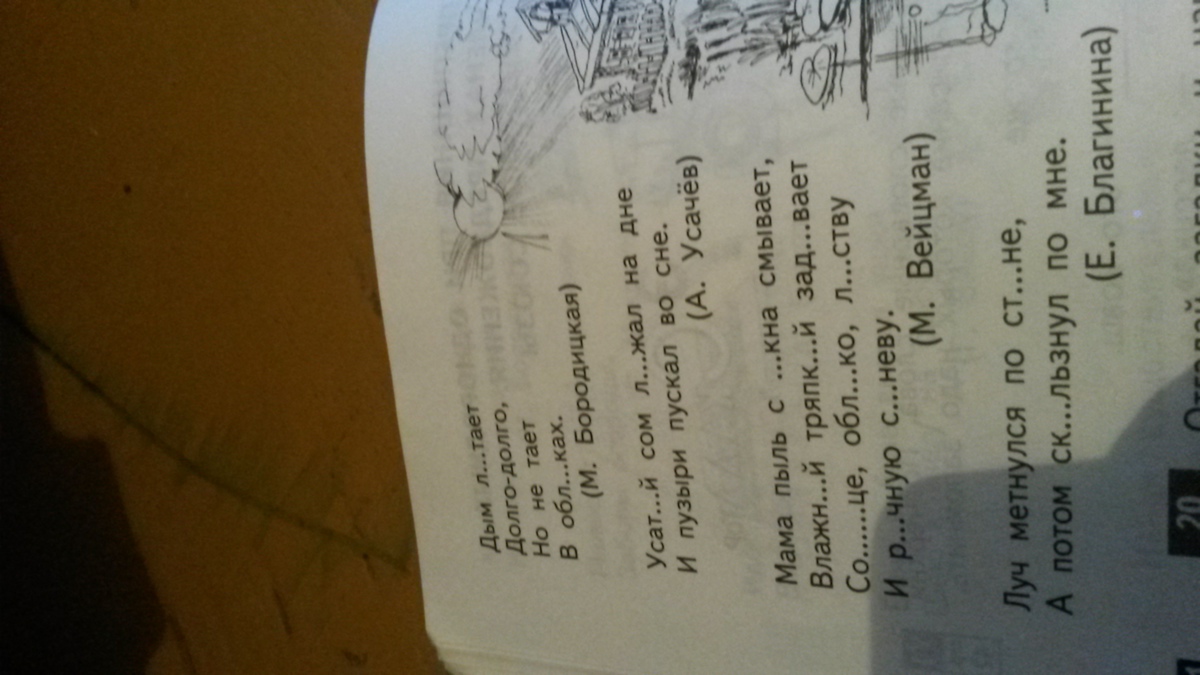 Дым л...тает
Долго-долго,
Но не тает
В обл...ках.
(М. Бородицкая)
Усат...й сом л...жал на дне
И пузыри пускал во сне.
(А. Усачёв)
Мама пыль с ...кна смывает,
Влажн...й тряпк...й зад...вает
Со......це, обл...ко, л...ству
И р...чную с...неву.
(М. Вейцман)
Луч метнулся по ст...не,
А потом ск...льзнул по мне.
(Е. Благинина)
20